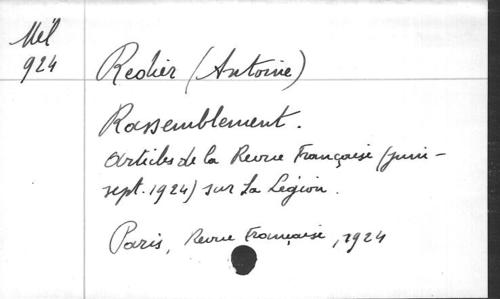 Mél
924
Redier (Antoine)
Rassemblement.
Articles de la Revue Française (juin-
sept. 1924) sur La Légion.
Paris, Revue Française, 1924